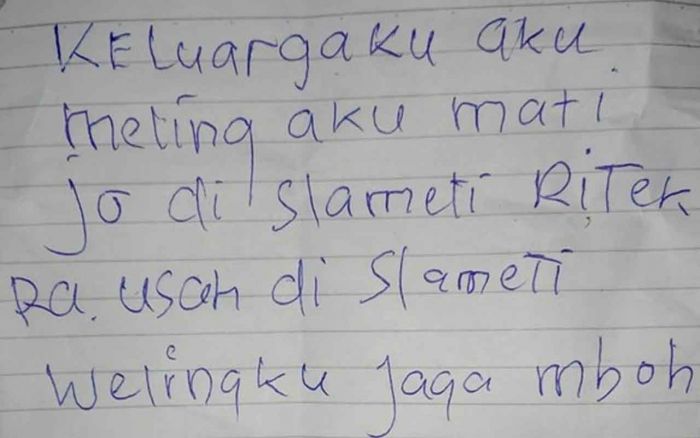 KELuargaku aku
meling aku mati
jo di slameti RiTek
Ra. usah di slameti
welingku jaga mboh